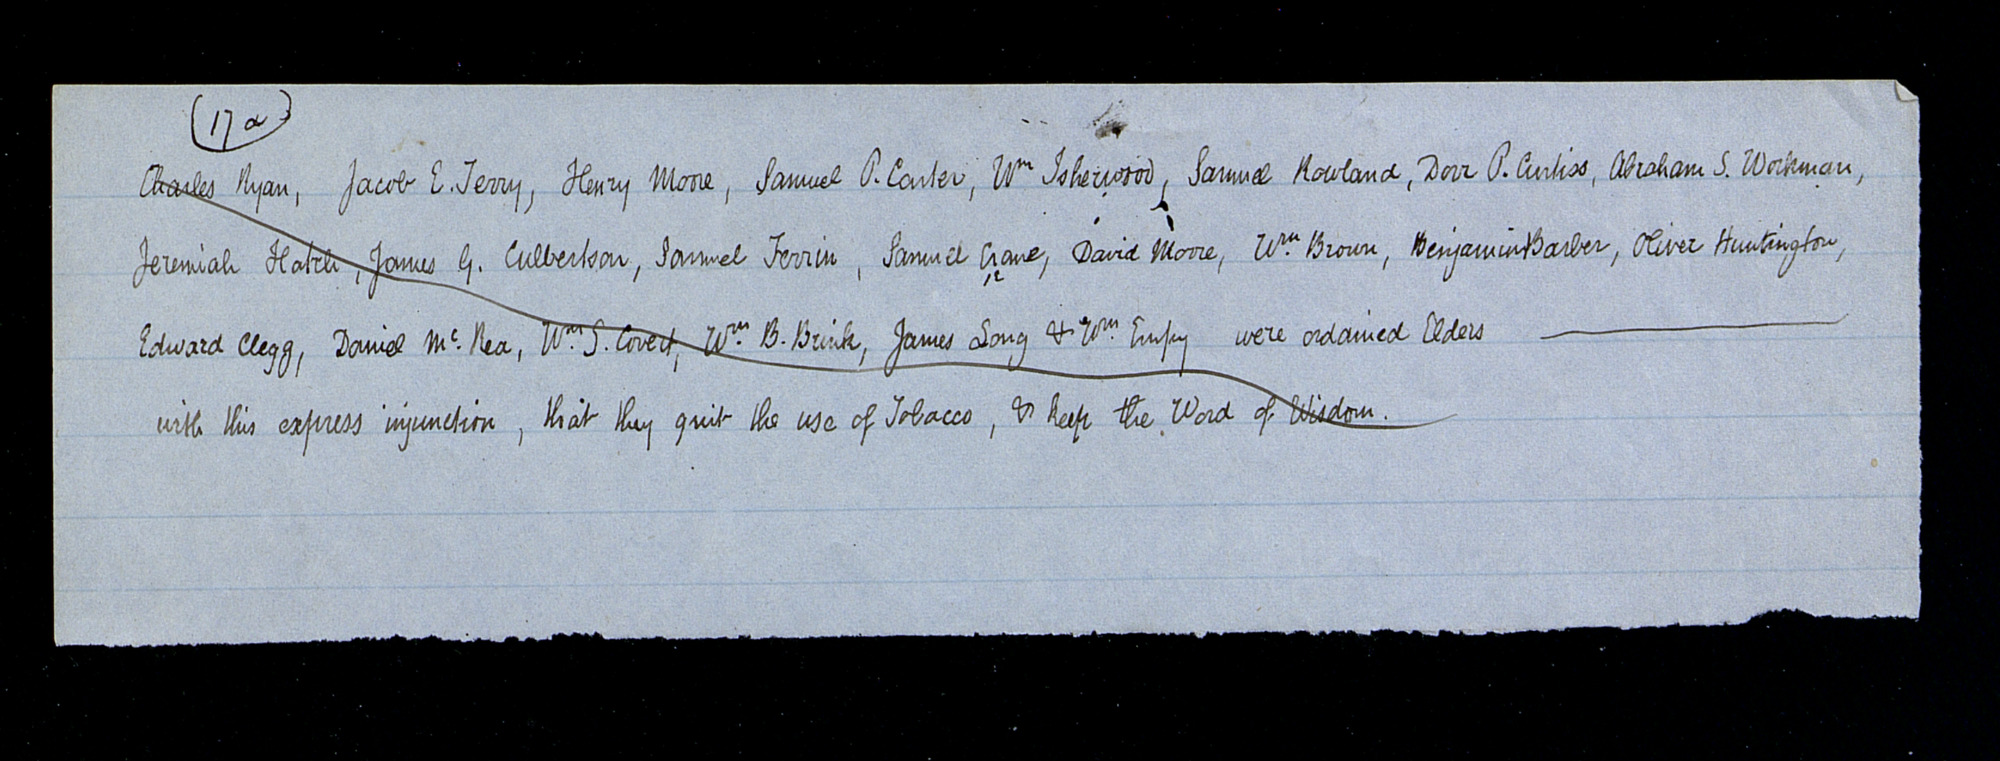 (17a)
Charles Ryan, Jacob E. Terry, Henry Moore, Samuel P. Carter, Wm Isherwood, Samuel Rowland, Dorr P. Curtiss, Abraham S. Workman,
Jeremiah Hatch, James G. Culbertson, Samuel Ferrin, Samuel Crane, David Moore, Wm. Brown, Benjamin Barber, Oliver Huntington,
Edward Clegg, Daniel Mc. Rea, Wm. S. Covert, Wm. B. Brink, James Long & Wm. Empy were ordained Elders
with this express injunction, that they quit the use of Tobacco, & keep the Word of Wisdom.